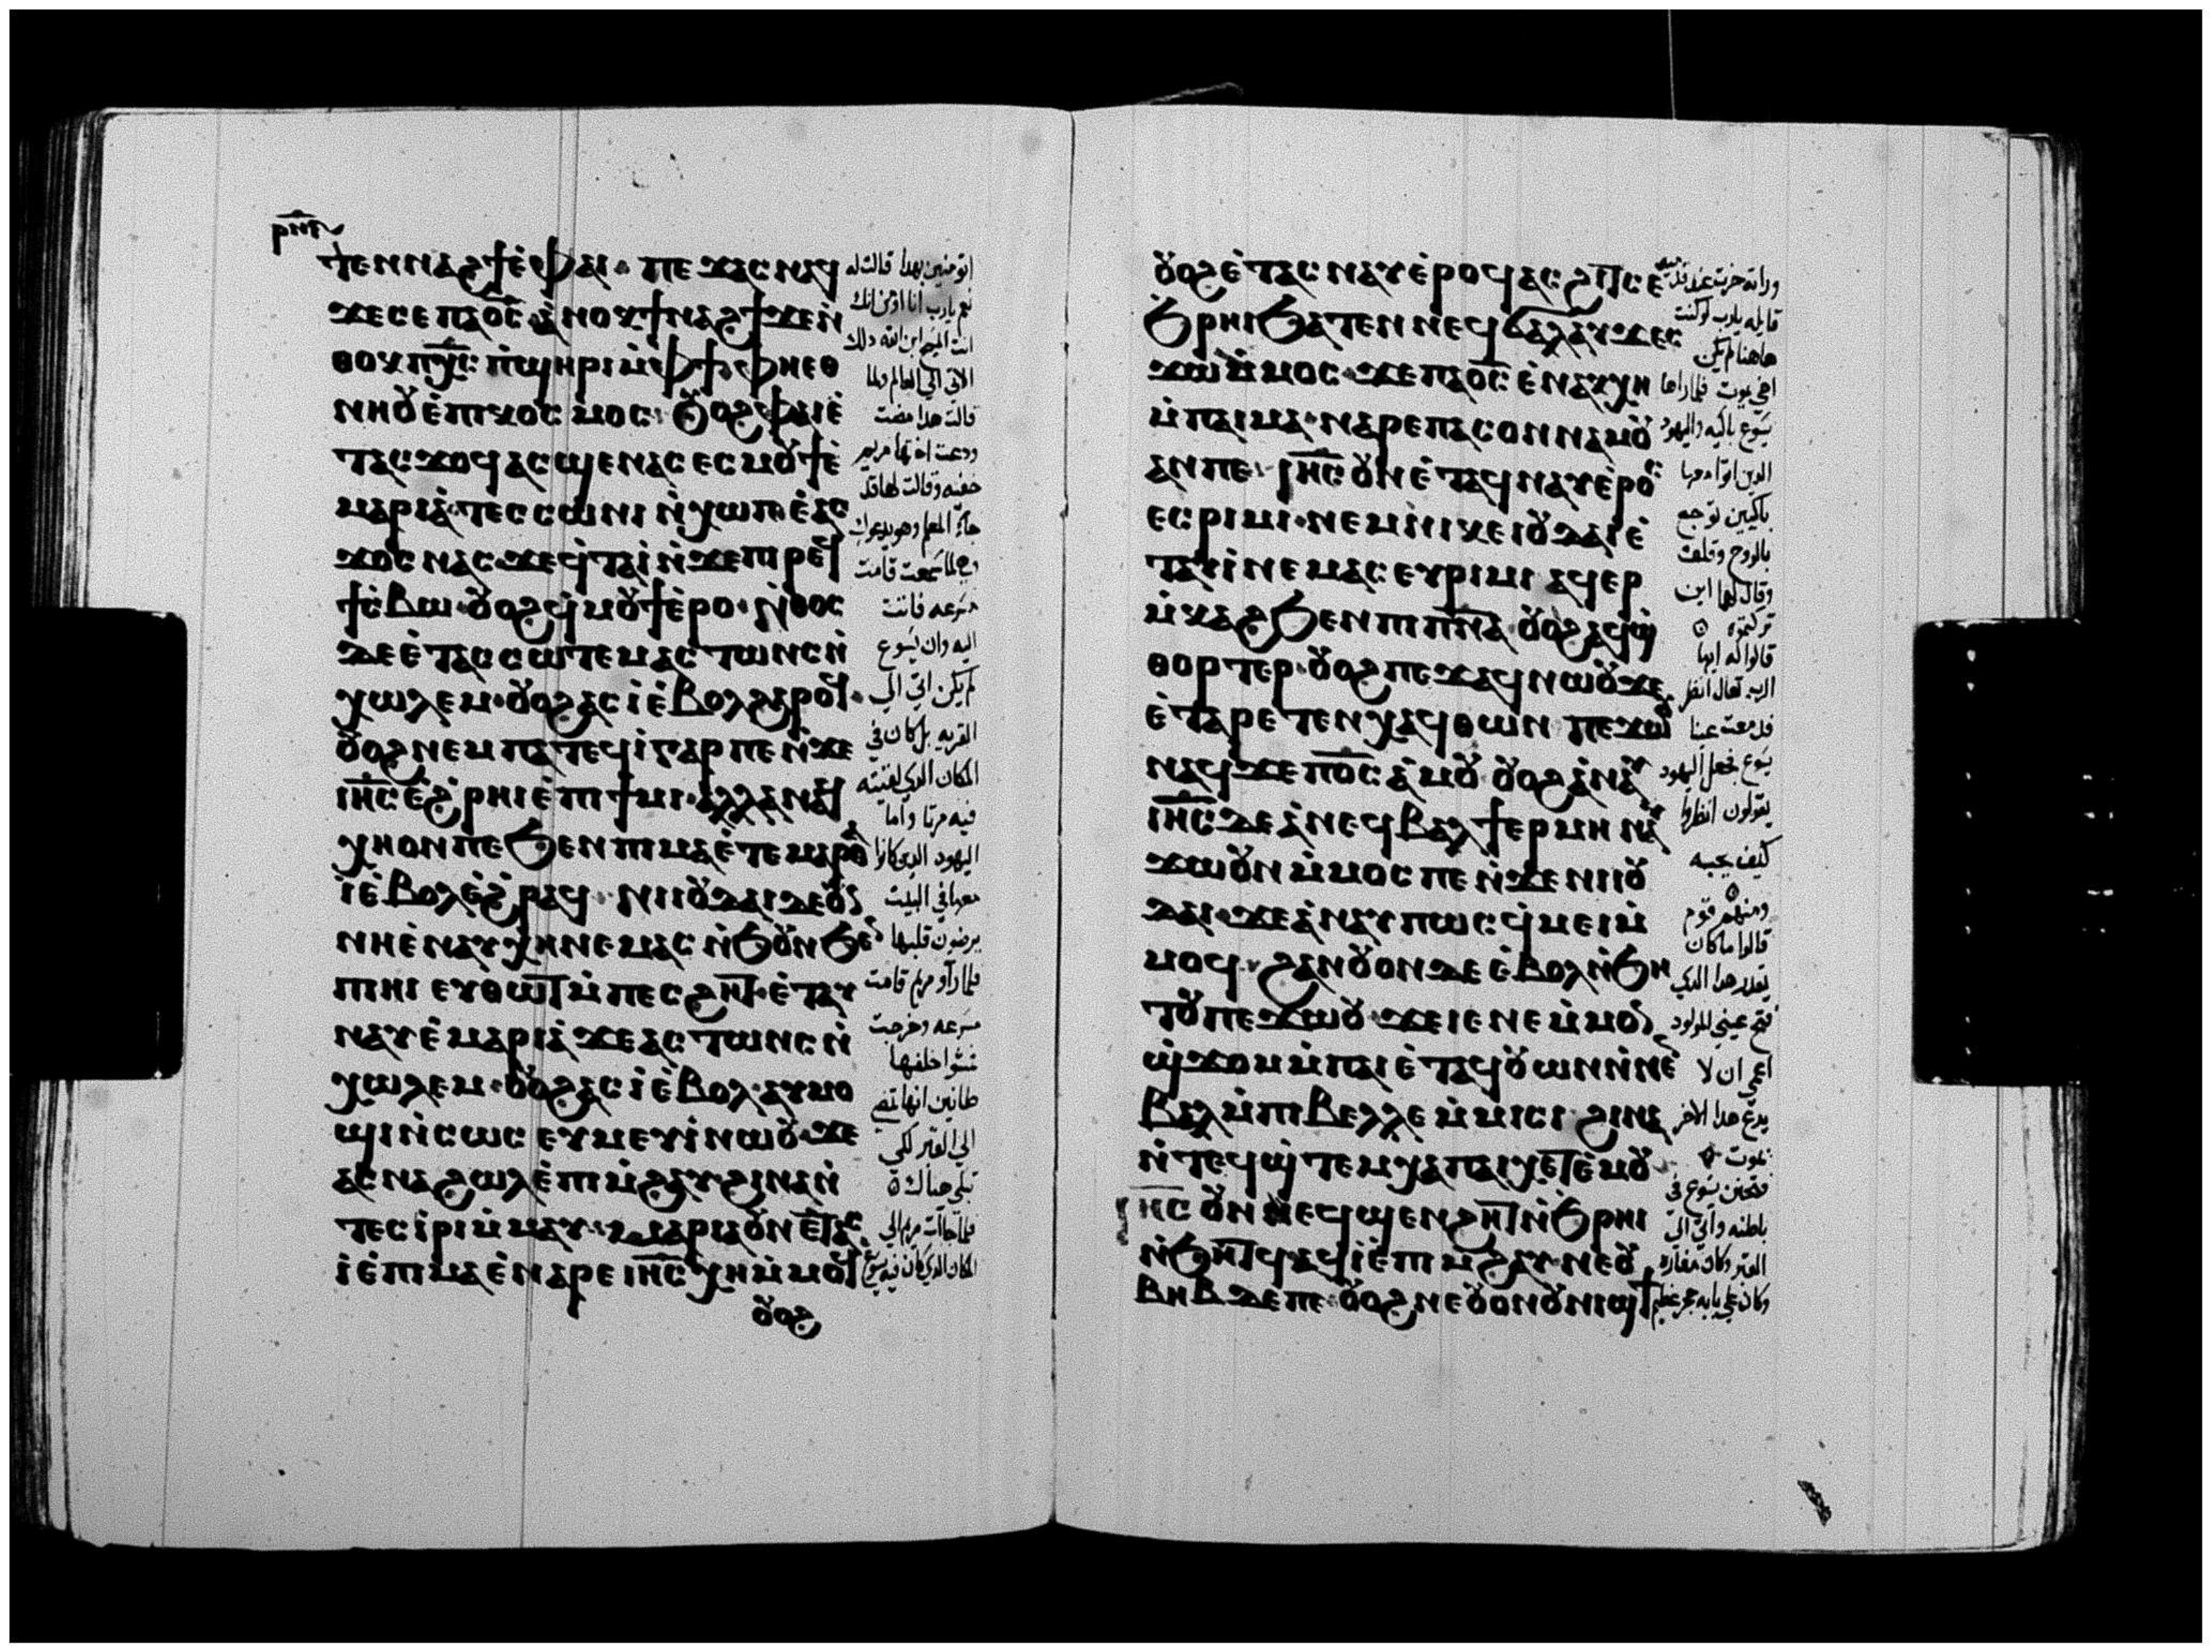 ⲣⲛⲏ
ⲧⲉⲛⲛⲁϩϯⲉ̀ⲫⲁⲓ· ⲡⲉϫⲁⲥⲛⲁϥ
ϫⲉⲥⲉⲡⲁⲟ̅ⲥ̅ ⲁ̀ⲛⲟⲕϯⲛⲁϩϯϫⲉⲛ̀
ⲑⲟⲕⲡⲭ̅ⲥ̅ ⲡ̀ϣⲏⲣⲓⲙ̀ⲫϯⲫⲏⲉⲑ
ⲛⲏⲟⲩⲉ̀ⲡⲓⲕⲟⲥⲙⲟⲥ· ⲟⲩⲟϩⲫⲁⲓⲉ̀
ⲧⲁⲥϫⲟϥⲁⲥϣⲉⲛⲁⲥⲉⲥⲙⲟⲩϯⲉ̀
ⲙⲁⲣⲓⲁ̀·ⲧⲉⲥⲥⲱⲛⲓ ⲛ̀ⲭⲱⲡⲉ̀ⲁⲥ
ϫⲟⲥⲛⲁⲥ·ϫⲉϥ̀ⲧⲁⲓ̀ⲛ̀ϫⲉⲡⲓⲣⲉϥ
ϯⲥ̀ⲃⲱ·ⲟⲩⲟϩϥ̀ⲙⲟⲩϯⲉ̀ⲣⲟ·ⲛ̀ⲑⲟⲥ
ⲇⲉⲉ̀ⲧⲁⲥⲥⲱⲧⲉⲙⲁⲥⲧⲱⲛⲥⲛ̀
ⲭⲱⲗⲉⲙ·ⲟⲩⲟϩⲁⲥⲓ̀ⲉ̀ⲃⲟⲗϩⲁⲣⲟϥ·
ⲟⲩⲟϩⲛⲉⲙⲡⲁⲧⲉϥⲓ̀ⲅⲁⲣⲡⲉⲛ̀ϫⲉ
ⲓⲏ̅ⲥ̅ⲉ̀ϩ̀ⲣⲏⲓⲉ̀ⲡⲓϯⲙⲓ·ⲁⲗⲗⲁⲛⲁϥ
ⲭⲏⲟⲛⲡⲉϧⲉⲛⲡⲓⲙⲁⲉ̀ⲧⲉⲙⲁⲣⲑⲁ
ⲓ̀ⲉ̀ⲃⲟⲗⲉ̀ϩ̀ⲣⲁϥ· ⲛⲓⲓⲟⲩⲇⲁⲓⲇⲉⲟⲩⲛ
ⲛⲏⲉ̀ⲛⲁⲩⲭⲏⲛⲉⲙⲁⲥ ⲛ̀ϧⲟⲩⲛϧⲉⲛ
ⲡⲓⲏⲓ ⲉⲩⲑⲱⲧⲙ̀ⲡⲉⲥϩⲏⲧ·ⲉ̀ⲧⲁⲩ
ⲛⲁⲩⲉ̀ⲙⲁⲣⲓⲁ̀ ϫⲉⲁⲥⲧⲱⲛⲥⲛ̀
ⲭⲱⲗⲉⲙ·ⲟⲩⲟϩⲁⲥⲓ̀ⲉ̀ⲃⲟⲗ·ⲁⲩⲙⲟ
ϣⲓⲛ̀ⲥⲱⲥ ⲉⲩⲙⲉⲩⲓ̀ⲛⲱⲟⲩ·ϫⲉ
ⲁⲥⲛⲁϩⲱⲗⲉ̀ⲡⲓⲙ̀ϩⲁⲩϩⲓⲛⲁⲛ̀
ⲧⲉⲥⲓ̀ⲣⲓⲙ̀ⲙⲁⲩ·ⲙⲁⲣⲓⲁⲟⲩⲛⲉ̀ⲧⲁⲥ
ⲓ̀ⲉ̀ⲡⲓⲙⲁⲉ̀ⲛⲁⲣⲉⲓⲏ̅ⲥ̅ⲭⲏⲙ̀ⲙⲟϥ
ⲟⲩⲟϩ
اتومنين بهذا قالت له
نعم يارب انا اومن انك
انت المسيح ابن الله ذلك
الاتي الي العالم ولما
قالت هذا مضت
ودعت اختها مريم
خفيه وقالت لها قد
جآء المعلم وهو يدعوك
وهي لما سمعت قامت
مسرعه فاتت
اليه وان يسوع
لم يكن اتي الي
القريه بل كان في
المكان الدي لقيته
فيه مرتا واما
اليهود الدين كانوا
معها في البيت
يرضون قلبها
فلما راو مريم قامت
مسرعه وخرجت
مشوا خلفها
ظانين انها تمضي
الي القبر لكي
تبكي هناك
فلما جاات مريم الي
المكان الدي كان فيه يسوع
ⲟⲩⲟϩⲉ̀ⲧⲁⲥⲛⲁⲩⲉ̀ⲣⲟϥⲁⲥϩⲓⲧⲥⲉ̀
ϧ̀ⲣⲏⲓϧⲁⲧⲉⲛⲛⲉϥϭⲁⲗⲁⲩϫⲉⲥ
ϫⲱⲙ̀ⲙⲟⲥ·ϫⲉⲡⲁⲟ̅ⲥ̅ ⲉ̀ⲛⲁⲕⲭⲏ
ⲙ̀ⲡⲁⲓⲙⲁ·ⲛⲁⲣⲉⲡⲁⲥⲟⲛⲛⲁⲙⲟⲩ
ⲁⲛⲡⲉ· ⲓⲏ̅ⲥ̅ ⲟⲩⲛⲉ̀ⲧⲁϥⲛⲁⲩⲉ̀ⲣⲟⲥ
ⲉⲥⲣⲓⲙⲓ·ⲛⲉⲙⲛⲓⲕⲉⲓⲟⲩⲇⲁⲓⲉ̀
ⲧⲁⲩⲓ̀ⲛⲉⲙⲁⲥⲉⲩⲣⲓⲙⲓ ⲁϥⲉⲣ
ⲙ̀ⲕⲁϩϧⲉⲛⲡⲓⲡ̅ⲛ̅ⲁ̅·ⲟⲩⲟϩⲁϥϣ̀
ⲑⲟⲣⲧⲉⲣ·ⲟⲩⲟϩⲡⲉϫⲁϥⲛⲱⲟⲩϫⲉ
ⲉ̀ⲧⲁⲣⲉⲧⲉⲛⲭⲁϥⲑⲱⲛ ⲡⲉϫⲱⲟⲩ
ⲛⲁϥϫⲉⲡⲟ̅ⲥ̅ ⲁ̀ⲙⲟⲩ ⲟⲩⲟϩⲁ̀ⲛⲁⲩ
ⲓⲏ̅ⲥ̅ⲇⲉⲁ̀ⲛⲉϥⲃⲁⲗϯⲉⲣⲙⲏ ⲛⲁⲩ
ϫⲱⲟⲩⲛⲙ̀ⲙⲟⲥⲡⲉⲛ̀ϫⲉⲛⲓⲓⲟⲩ
ⲇⲁⲓ·ϫⲉⲁ̀ⲛⲁⲩⲡⲱⲥϥ̀ⲙⲉⲓⲙ̀
ⲙⲟϥ· ϩⲁⲛⲟⲩⲟⲛⲇⲉⲉ̀ⲃⲟⲗⲛ̀ϧⲏ
ⲧⲟⲩⲡⲉϫⲱⲟⲩ·ϫⲉⲓⲉⲛⲉⲙ̀ⲙⲟⲛ
ϣ̀ϫⲟⲙⲙ̀ⲡⲁⲓⲉ̀ⲧⲁϥⲟⲩⲱⲛⲛ̀ⲛⲉⲛ
ⲃⲁⲗⲙ̀ⲡⲓⲃⲉⲗⲗⲉⲙ̀ⲙⲓⲥⲓ ϩⲓⲛⲁ
ⲛ̀ⲧⲉϥϣ̀ⲧⲉⲙⲭⲁⲡⲁⲓⲭⲉⲧⲉ̀ⲙⲟⲩ
ⲓⲏ̅ⲥ̅ ⲟⲩⲛ ⲛⲉϥϣⲉⲛϩⲏⲧⲛ̀ϧ̀ⲣⲏⲓ
ⲛ̀ϧⲏⲧϥⲁϥⲓ̀ⲉ̀ⲡⲓⲙϩⲁⲩ·ⲛⲉⲟⲩ
ⲃⲏⲃⲇⲉⲡⲉ·ⲟⲩⲟϩⲛⲉⲟⲩⲟⲛⲟⲩⲛⲓϣϯ
وراته خرت عند قدميه
قايله يارب لو كنت
هاهنا لم يكن
اخي يموت فلما راها
يسوع باكيه واليهود
الدين اتوا معها
باكيين توجع
بالروح وقلق
وقال لهما اين
تركتموه
قالوا له ايها
الرب تعال انظر
فدمعت عينا
يسوع فجعل اليهود
يقولون انظروا
كيف يحبه
ومنهم قوم
قالوا ما كان
يقدر هذا الدي
فتح عيني المولود
اعمي ان لا
يدع هدا الاخر
يموت
فتحنن يسوع في
باطنه واتي الي
القبر وكان مغاره
وكان علي بابه حجر عظيم